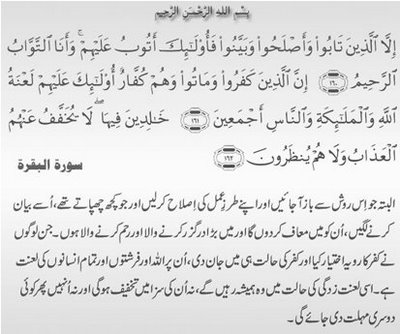 بِسْمِ اللهِ الرَّحْمٰنِ الرَّحِيْمِ
إِلَّا ٱلَّذِينَ تَابُوا۟ وَأَصْلَحُوا۟ وَبَيَّنُوا۟ فَأُو۟لَـٰٓئِكَ أَتُوبُ عَلَيْهِمْ ۚ وَأَنَا ٱلتَّوَّابُ
ٱلرَّحِيمُ ١٦٠ إِنَّ ٱلَّذِينَ كَفَرُوا۟ وَمَاتُوا۟ وَهُمْ كُفَّارٌ أُو۟لَـٰٓئِكَ عَلَيْهِمْ لَعْنَةُ
ٱللَّهِ وَٱلْمَلَـٰٓئِكَةِ وَٱلنَّاسِ أَجْمَعِينَ ١٦١ خَـٰلِدِينَ فِيهَا ۖ لَا يُخَفَّفُ عَنْهُمُ
ٱلْعَذَابُ وَلَا هُمْ يُنظَرُونَ ١٦٢ سورة البقرة
البتہ جو اس روش سے باز آ جائیں اور اپنے طرز عمل کی اصلاح کر لیں اور جو کچھ چھپاتے تھے، اُسے بیان
کرنے لگیں، اُن کو میں معاف کر دوں گا اور میں بڑا درگزر کرنے والا اور رحم کرنے والا ہوں۔ جن لوگوں
نے کفر کا رویہ اختیار کیا اور کفر کی حالت ہی میں جان دی، اُن پر اللہ اور فرشتوں اور تمام انسانوں کی لعنت
ہے۔ اسی لعنت زدگی کی حالت میں وہ ہمیشہ رہیں گے، نہ اُن کی سزا میں تخفیف ہوگی اور نہ اُنہیں پھر کوئی
دوسری مہلت دی جائے گی۔